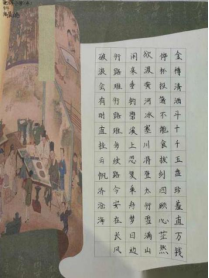 金樽清酒斗十千玉盘珍羞直万钱
停杯投箸不能食拔剑四顾心茫然
欲渡黄河冰塞川将登太行雪满山
闲来垂钓碧溪上忽复乘舟梦日边
行路难行路难多歧路今安在长风
破浪会有时直挂云帆济沧海